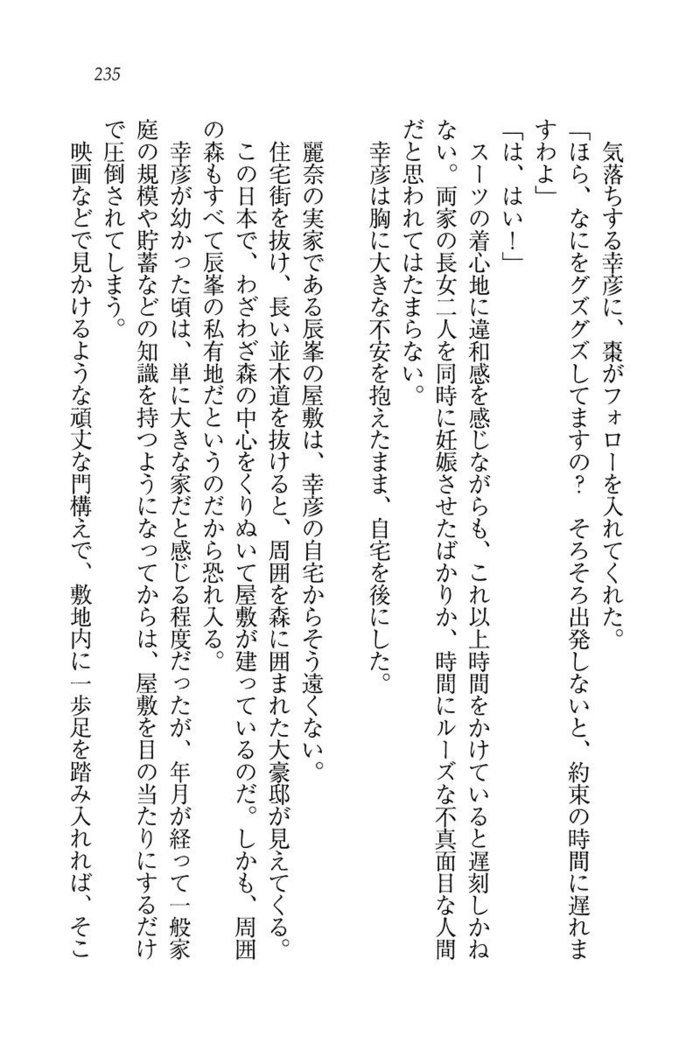 235
気落ちする幸彦に、棗がフォローを入れてくれた。
「ほら、なにをグズグズしてますの？　そろそろ出発しないと、約束の時間に遅れま
すわよ」
「は、はい！」
スーツの着心地に違和感を感じながらも、これ以上時間をかけていると遅刻しかね
ない。両家の長女二人を同時に妊娠させたばかりか、時間にルーズな不真面目な人間
だと思われてはたまらない。
幸彦は胸に大きな不安を抱えたまま、自宅を後にした。
麗奈の実家である辰峯の屋敷は、幸彦の自宅からそう遠くない。
住宅街を抜け、長い並木道を抜けると、周囲を森に囲まれた大豪邸が見えてくる。
この日本で、わざわざ森の中心をくりぬいて屋敷が建っているのだ。しかも、周囲
の森もすべて辰峯の私有地だというのだから恐れ入る。
幸彦が幼かった頃は、単に大きな家だと感じる程度だったが、年月が経って一般家
庭の規模や貯蓄などの知識を持つようになってからは、屋敷を目の当たりにするだけ
で圧倒されてしまう。
映画などで見かけるような頑丈な門構えで、敷地内に一歩足を踏み入れれば、そこ